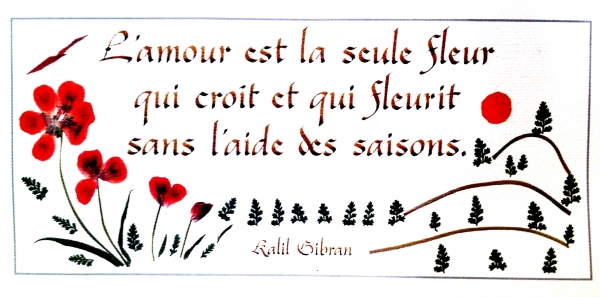 L'amour est la seule fleur
qui croit et qui fleurit
sans l'aide des saisons.
Kalil Gibran